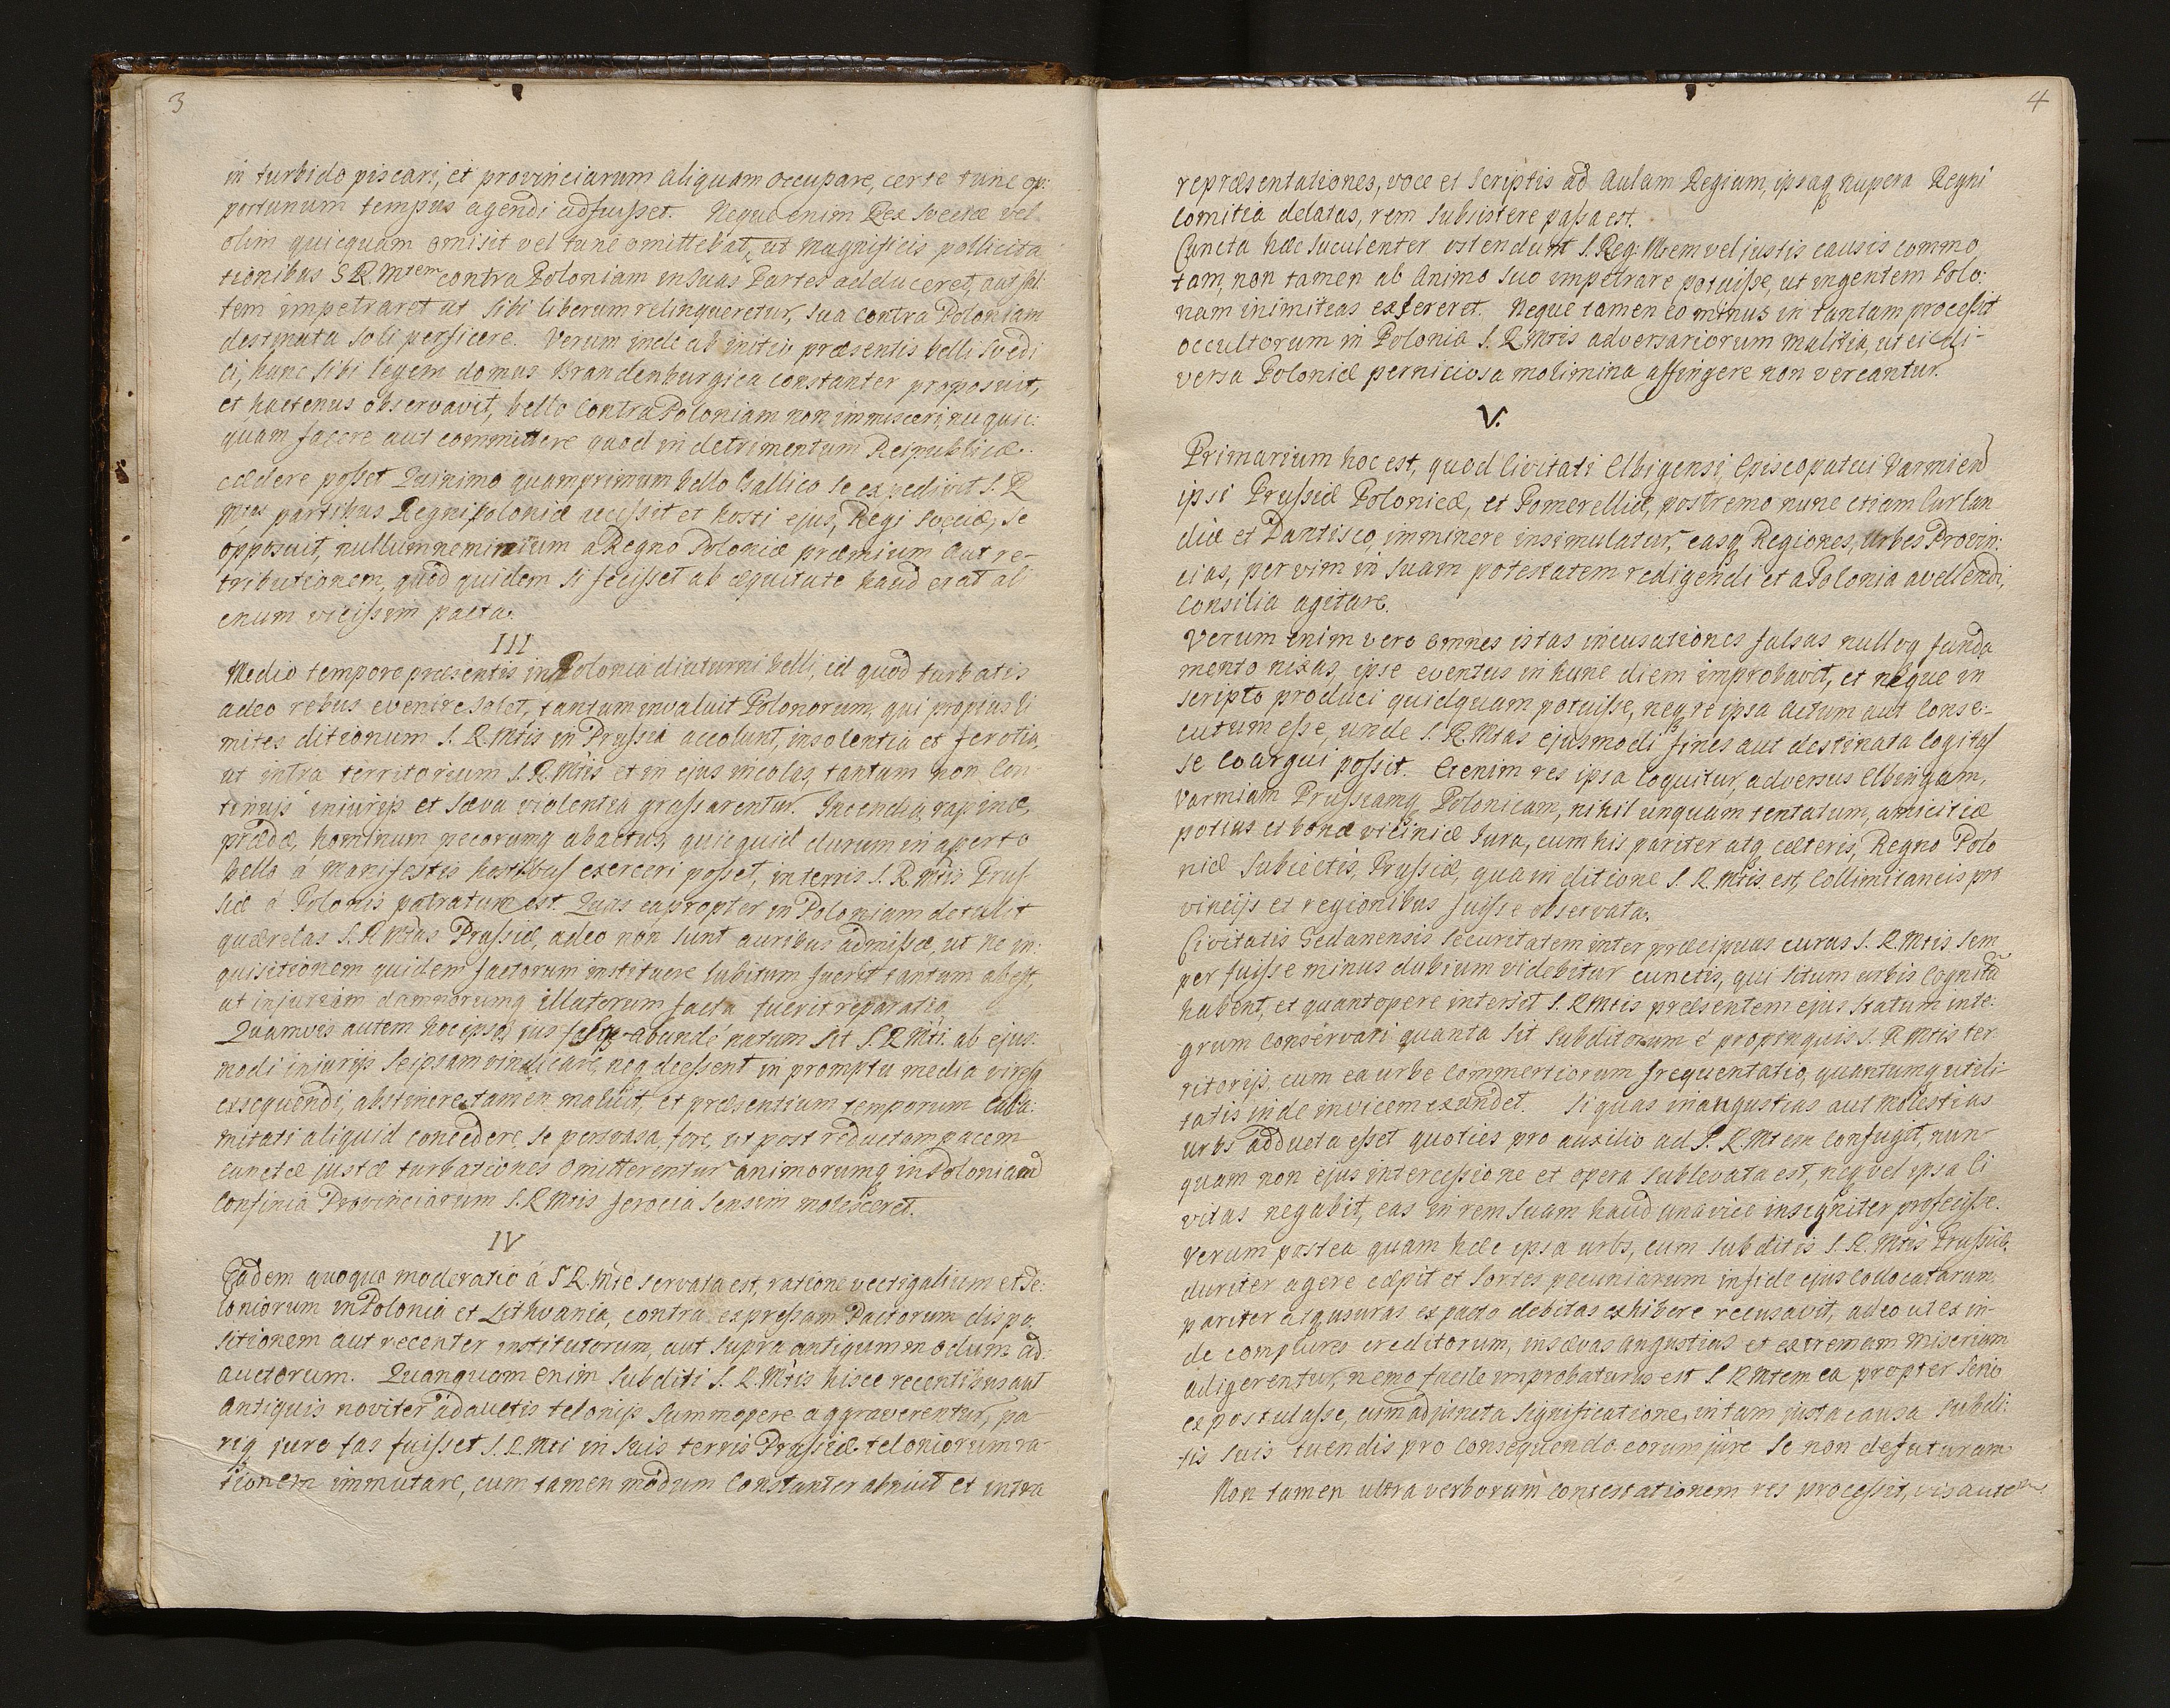 3
in turbido piscari, et provinciarum aliquam occupare, certe tunc op:
portunum tempus agendi adfuisset. Neque enim Rex Sveciæ vel
olim quicquam omisit vel tunc omittebat, ut magnificis pollicita
tionibus S R. Mtem contra Poloniam in suas Partes adduceret, aut sal
tem impetraret ut sibi liberum relinqueretur, sua contra Poloniam
destinata soli perficere. Verum inde ab initio præsentis belli Svedi
ci, hanc sibi legem domus Brandenburgica constanter proposuit,
et hactenus observavit, bello contra Poloniam non immisceri, nec quic:
quam facere aut committere quod in detrimentum Reipublicæ
cædere posset Quinimo quamprimum bello Gallico se expedivit S. R
Mtas partibus Regni Poloniæ accessit et hosti ejus, Regi Sveciæ, se
opposuit, nullum a Regno Poloniæ præmium aut re-
tributionem, quod quidem si fecisset ab æquitate haud erat al
enum vicissim pacta.
III
Medio tempore præsentis in Polonia diuturni belli, id quod turbatis
adeo rebus evenire solet, tantum invaluit Polonorum, qui propius li
mites ditionum S. R. Mtis in Prussia accolunt, insolentia et ferocia,
ut intra territorium S. R Mtis et in ejus incolas, tantum non con-
tinuis injurijs et sæva violentia grassarentur. Incendia, rapinæ,
prædæ, hominum pecorumq abactus, quicquid durum in aperto
bello á manifestis hostibus exerceri posset, in terris S. R. Mtis Prus
siæ á Polonis patratum est. Quas eapropter in Poloniam detulit
quærelas S. R Mtas Prussiæ, adeo non sunt auribus admissæ, ut ne in:
quisitionem quidem factorum instituere lubitum fuerit tantum abest,
ut injuriam damnorumq illatorum facta fuerit reparatio,
Quamvis autem hoc ipso, jus abundé natum sit S. R Mti ab ejus:
modi injurijs seipsam vindicare, neq deessent in promptu media viresq
exsequendi, abstinere tamen maluit, et præsentium temporum cala:
mitati aliquid concedere, se persvasa, fore, ut post reductam pacem
cunctæ justæ turbationes omitterentur animorumq in Poloniæ ad
Confinia Provinciarum S. R Mtis ferocia sensim molesceret.
IV
Eadem quoque moderatio á S R. Mte servata est, ratione vectigalium et te:
loniorum in Polonia et Lithvania, contra expressam Pactorum dispo
sitionem aut recenter institutorum, aut supra antiquum modum ad:
auctorum. Quanquam enim subditi S. R. Mtis hisce recentibus aut
antiquis noviter adauctis telonijs summopere aggraverentur, pa
riq jure fas fuisset S. R. Mti in suis terris Prussiæ teloniorum ra-
tionem immutare, cum tamen modum constanter abnuit et intra
4
repræsentationes, voce et scriptis ad Aulam Regiam, ipsaq nupera Regni
Comitia delatas, rem subsistere passa est.
Cuncta hæc luculenter ostendunt S. Reg. Mtem vel justis causis commo
tam, non tamen ab animo suo impetrare potuisse, ut in gentem Polo:
nam inimicitias exsereret. Neque tamen eo minus in tantam processit
occultorum in Polonia S. R Mtis adversariorum malitia, ut ei di-
versa Poloniæ perniciosa molimina affingere non vereantur.
V.
Primarium hoc est, quod Civitati Elbigensi, Episcopatui Varmien
ipsi Prussiæ Polonicæ, et Pomerelliæ, postremo nunc etiam Curlan
diæ et Dantisco, imminere insimulatur, easq Regiones, Urbes Provin:
cias, per vim in suam potestatem redigendi et a Polonia avellendi,
consilia agitare.
Verum enim vero omnes istas incusationes falsas nulloq funda
mento nixas, ipse eventus in hunc diem improbavit, et neque in
scripto produci quidquam potuisse, neq re ipsa actum aut conse-
cutum esse, unde S. R. Mtas ejusmodi fines aut destinata cogitas
se coargui possit. Etenim res ipsa loquitur, adversus Elbingam,
Varmiam Prussiamq Polonicam, nihil unquam tentatum, amicitiæ
potius et bonæ viciniæ Jura, cum his pariter atq cæteris, Regno Polo
niæ subiectis, Prussiæ, qua in ditione S. R Mtis. est, Collimitaneis pro
vincijs et regionibus fuisse observata.
Civitatis Gedanensis securitatem inter præcipuas curas S. R. Mtis sem
per fuisse minus dubium videbitur cunctis, qui situm urbis cognitū
habent, et quantopere intersit S. R Mtis præsentem ejus statum inte:
grum conservari quanta sit subditorum é propinquis S. R Mtis ter-
ritorijs, cum ea urbe commertiorum frequentatio, quantumq utili-
tatis inde invicem exundet. Si quas in angustias aut molestias
urbs adducta esset quoties pro auxilio ad S. R. Mtem confugit, nun-
quam non ejus intercessione et opera sublevata est, neq vel ipsa Ci
vitas negabit, eas in rem suam haud una vice insigniter profecisse.
Verum postea quam hæc ipsa urbs, cum subditis S. R. Mtis Prussiæ
duriter agere cæpit et sortes pecuniarum in fide ejus collocatarum
pariter atq usuras ex pacto debitas exhibere recusavit, adeo ut ex in-
de complures creditorum, in sævas angustias et extremam miseriam
adigerentur, nemo facile improbaturus est S R Mtem ea propter serio
expostulasse, cum adjuncta significatione, in tam justa causa subdi:
tis suis tuendis pro consequendo eorum jure se non defuturam
Non tamen ultra verborum contestationem res processit, vis autem